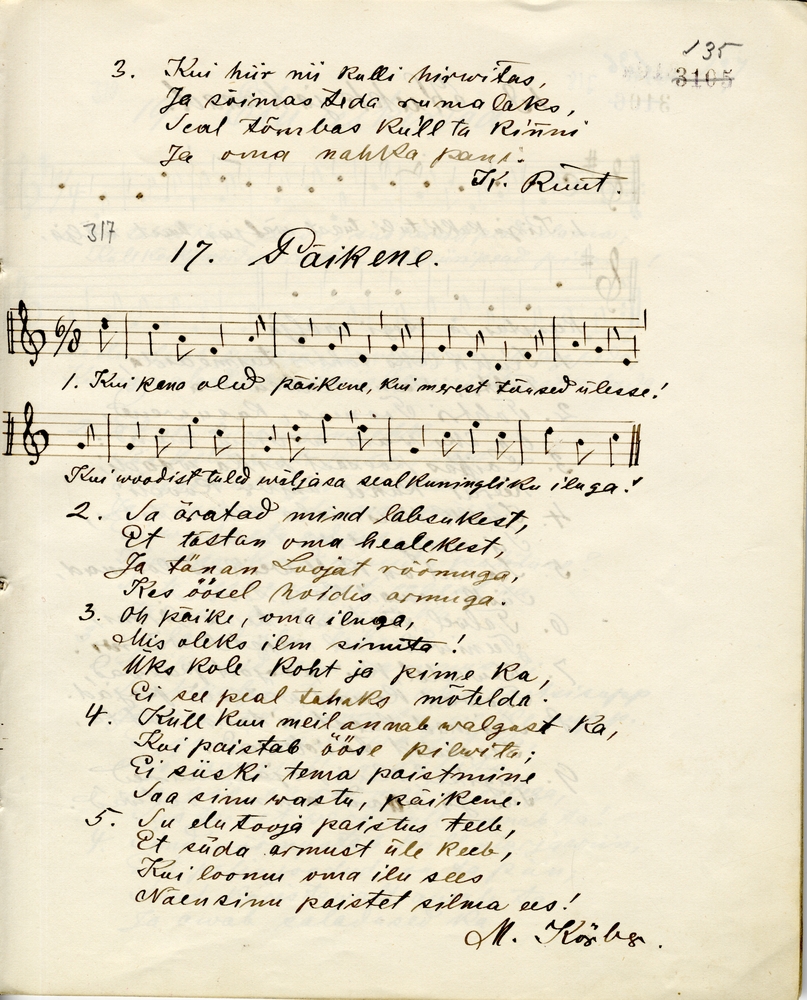 135
3105
3. Kui hiir nii kulli hirwitas,
Ja sõimas teda rumalaks,
Seal tõmbas kull ta kinni
Ja oma nahka pani.
K. Ruut.
317
17. Päikene.
6/8
1. Kui kena oled päikene, kui merest tõused ülesse!
Kui woodist tuled wäljasa seal kuningliku iluga!
2. Sa äratad mind labsukest,
Et tästan oma healekest,
Ja tänan Loojat rõõmuga,
Kes öösel hoidis armuga.
3. Oh päike, oma iluga,
Mis oleks ilm sinuta!
Üks kole koht ja pime ka,
Ei see peal tahaks mõtelda.
4. Küll kuu meil annab walgust ka,
Kui paistab ööse pilwita;
Ei siiski tema paistmine
Saa sinu wastu, päikene.
5. Su elutooja paistus teeb,
Et süda armust üle keeb,
Kui loonu oma ilu sees
Näen sinu paistet silma ees!
M. Körber.